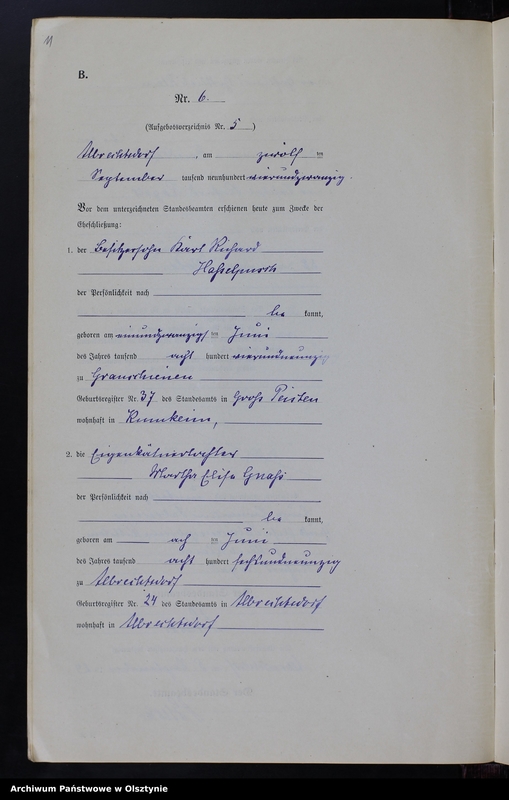 11
B.
Nr. 6.
(Aufgebotsverzeichnis Nr. 5)
Albrechtsdorf, am zwölf ten
September tausend neunhundert vierundzwanzig.
Vor dem unterzeichneten Standesbeamten erschienen heute zum Zwecke der
Eheschließung:
1. der Besitzersohn Karl Richard
der Persönlichkeit nach
be kannt,
geboren am einundzwanzigsten Juni
des Jahres tausend acht hundert vierundneunzig
zu
Geburtsregister Nr. 37 des Standesamts in Groß Peisten
wohnhaft in Rimkeim,
2. die Eigenkätnertochter
Martha Elise
der Persönlichkeit nach
be kannt,
geboren am ach ten Juni
des Jahres tausend acht hundert sechsundneunzig
zu Albrechtsdorf
Geburtsregister Nr. 24 des Standesamts in Albrechtsdorf
wohnhaft in Albrechtsdorf
Archiwum Państwowe w Olsztynie